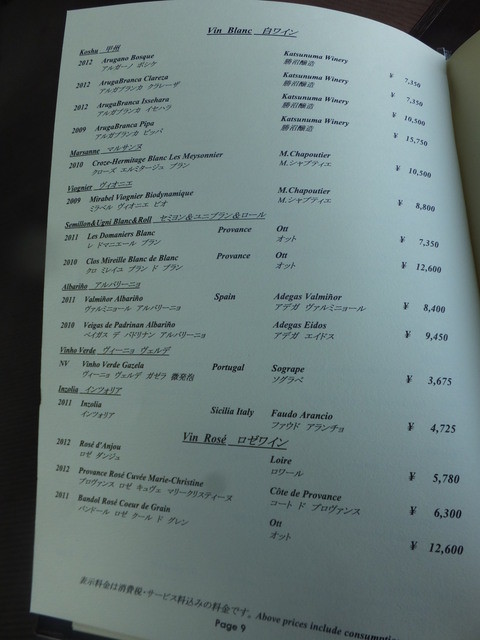 Vin Blanc 白ワイン
Koshu 甲州
2012 Arugano Bosque Katsunuma Winery ¥ 7,350
アルガーノ ボシケ 勝沼醸造
2012 ArugaBranca Clareza Katsunuma Winery ¥ 7,350
アルガブランカ クラレーザ 勝沼醸造
2012 ArugaBranca Issehara Katsunuma Winery ¥ 10,500
アルガブランカ イセハラ 勝沼醸造
2009 ArugaBranca Pipa Katsunuma Winery ¥ 15,750
アルガブランカ ピッパ 勝沼醸造
Marsanne マルサンヌ
2010 Croze-Hermitage Blanc Les Meysonnier M.Chapoutier ¥ 10,500
クローズ エルミタージュ ブラン M.シャプティエ
Viognier ヴィオニエ
2009 Mirabel Viognier Biodynamique M.Chapoutier ¥ 8,800
ミラベル ヴィオニエ ビオ M.シャプティエ
Semillon&Ugni Blanc&Roll セミヨン&ユニブラン&ロール
2011 Les Domaniers Blanc Provance Ott ¥ 7,350
レ ドマニエール ブラン オット
2010 Clos Mireille Blanc de Blanc Provance Ott ¥ 12,600
クロ ミレイユ ブラン ド ブラン オット
Albariño アルバリーニョ
2011 Valmiñor Albariño Spain Adegas Valmiñor ¥ 8,400
ヴァルミニョール アルバリーニョ アデガ ヴァルミニョール
2010 Veigas de Padrinan Albariño Adegas Eidos ¥ 9,450
ベイガス デ パドリナン アルバリーニョ アデガ エイドス
Vinho Verde ヴィーニョ ヴェルデ
NV Vinho Verde Gazela Portugal Sogrape ¥ 3,675
ヴィーニョ ヴェルデ ガゼラ 微発泡 ソグラペ
Inzolia インツォリア
2011 Inzolia Sicilia Italy Faudo Arancio ¥ 4,725
インツォリア ファウド アランチョ
Vin Rosé ロゼワイン
2012 Rosé d'Anjou Loire ¥ 5,780
ロゼ ダンジュ ロワール
2012 Provance Rosé Cuvée Marie-Christine Côte de Provance ¥ 6,300
プロヴァンス ロゼ キュヴェ マリークリスティーヌ コート ド プロヴァンス
2011 Bandol Rosé Coeur de Grain Ott ¥ 12,600
バンドール ロゼ クール ド グレン オット
表示料金は消費税・サービス料込みの料金です。Above prices include consumptio
Page 9